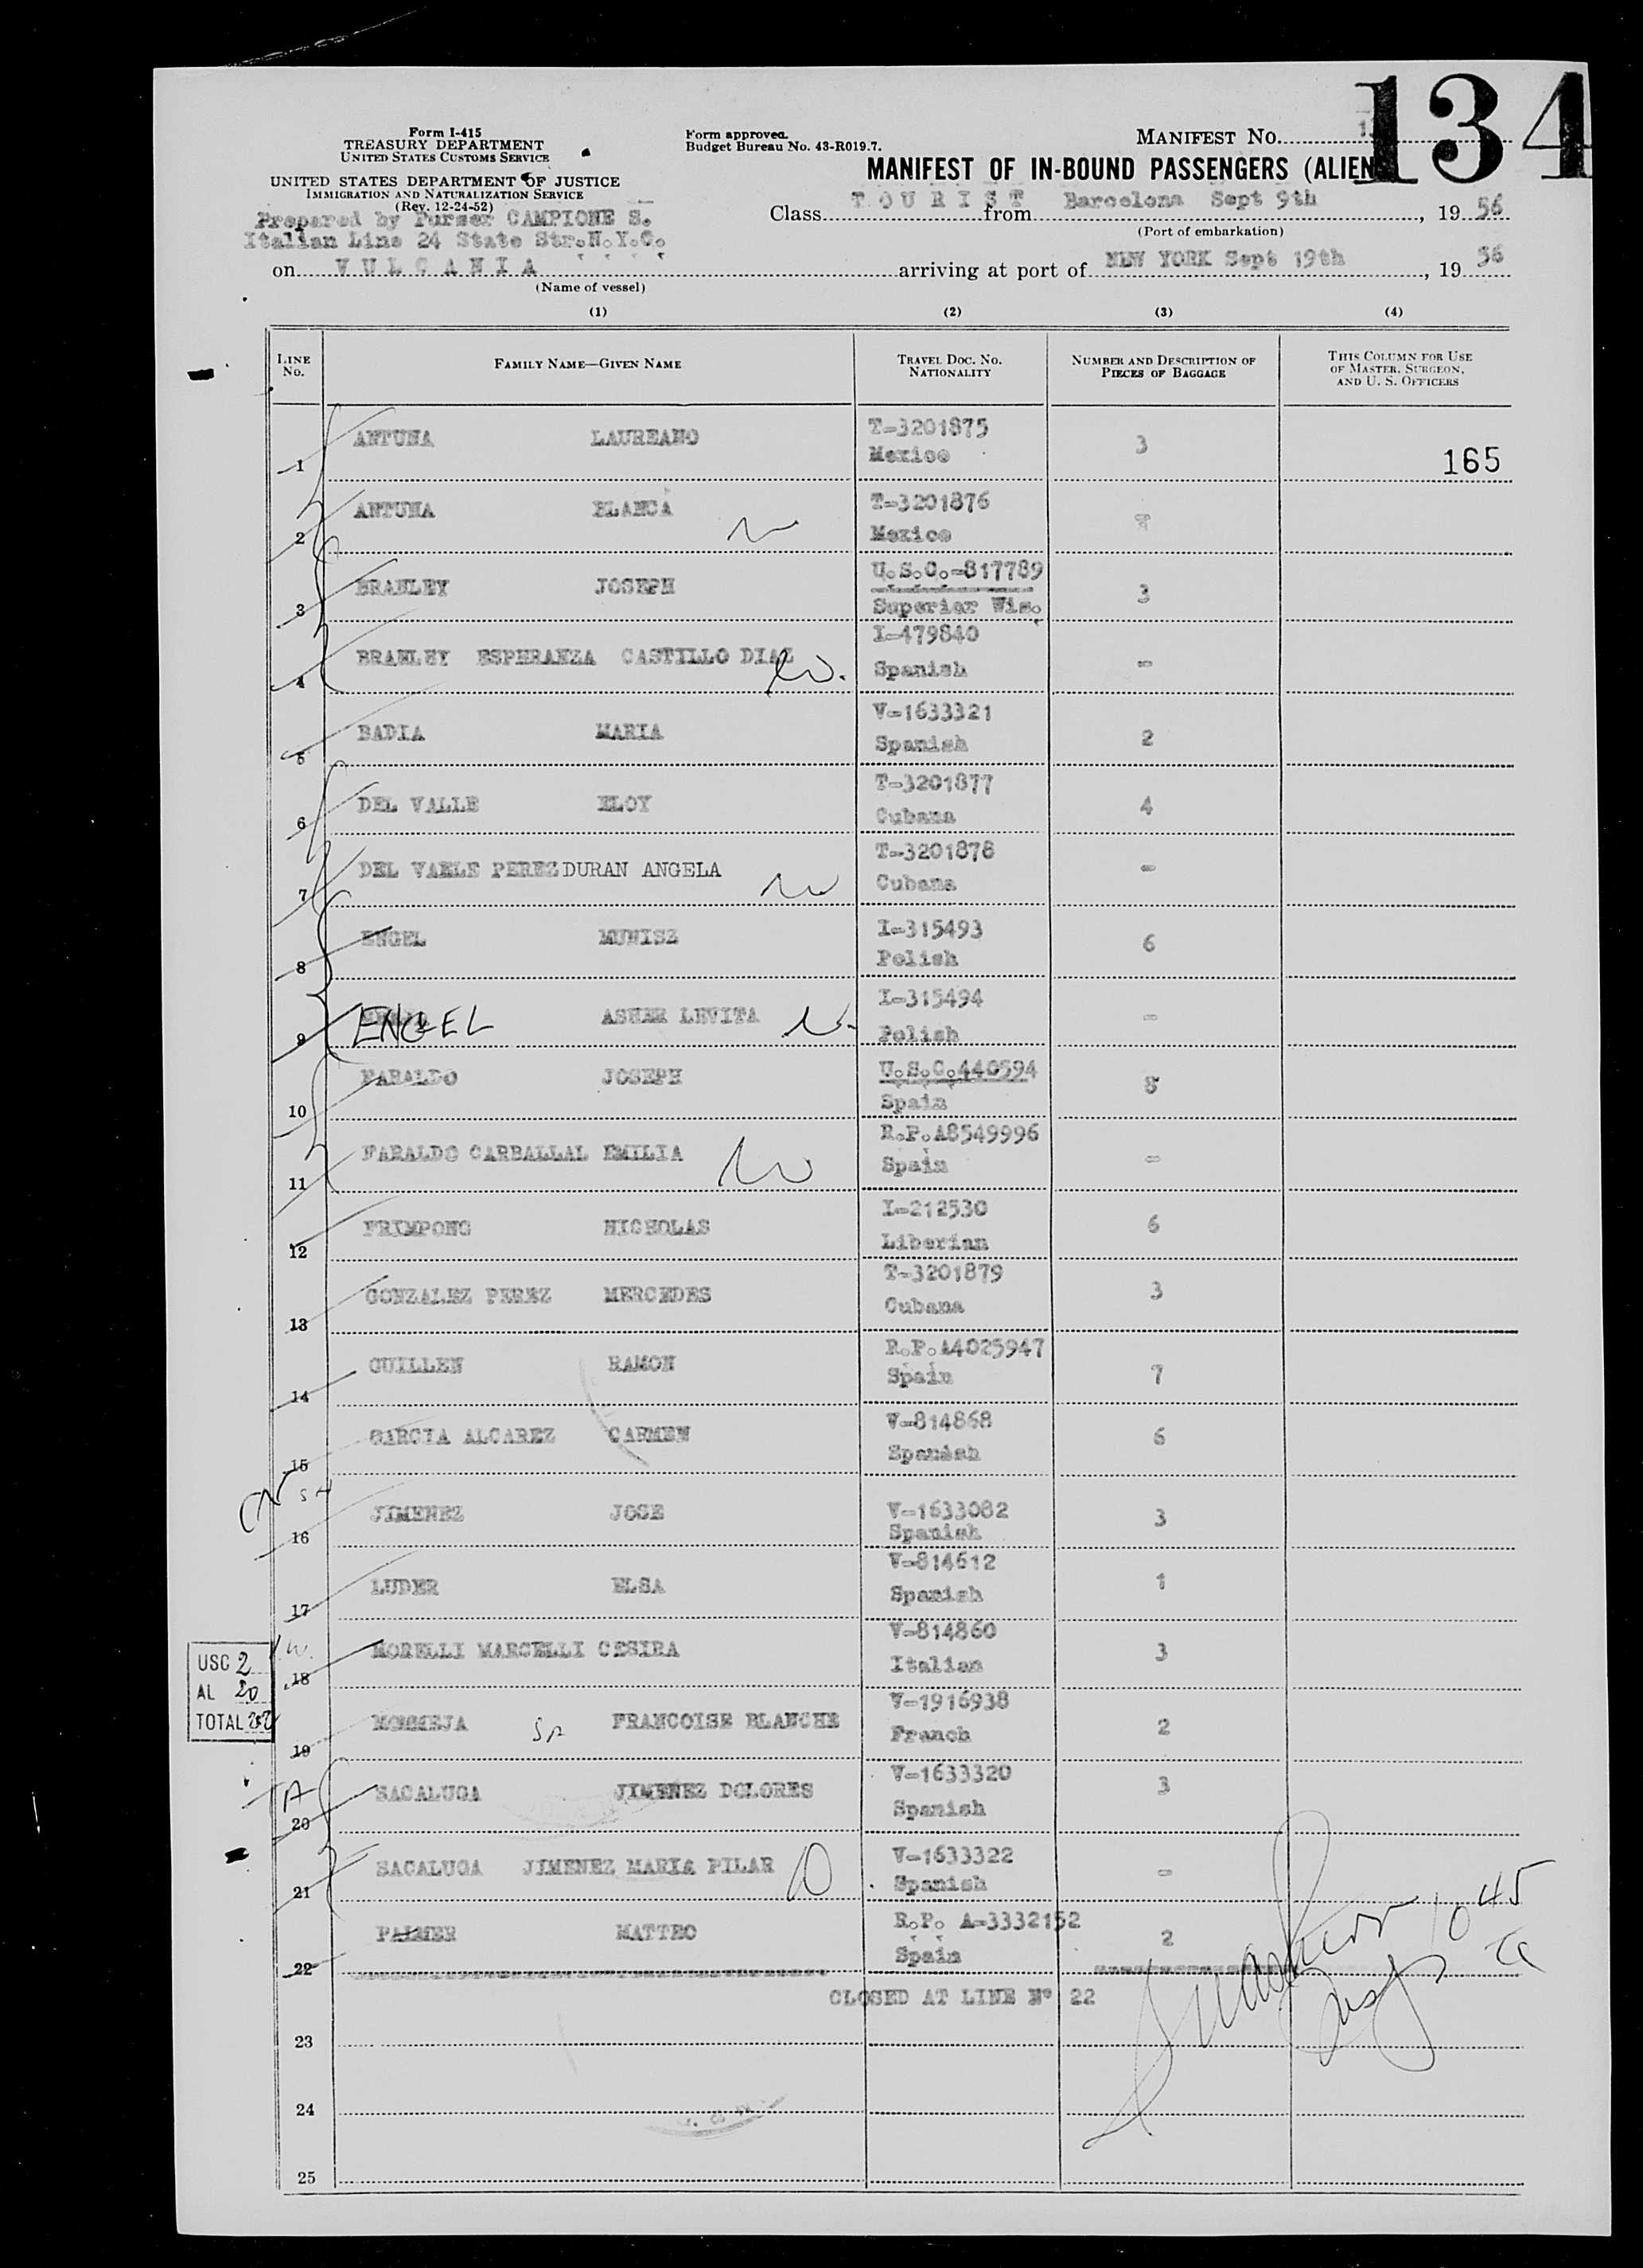 134
Form I-415
TREASURY DEPARTMENT
UNITED STATES CUSTOMS SERVICE
UNITED STATES DEPARTMENT OF JUSTICE
IMMIGRATION AND NATURALIZATION SERVICE
(Rev. 12-24-52)
Form approved.
Budget Bureau No. 43-R019.7.
MANIFEST NO.
MANIFEST OF IN-BOUND PASSENGERS (ALIEN
Prepared by Purser CAMPIONE S.
Italian Line 24 State Str.N.Y.C.
Class TOURIST from Barcelona Sept 9th, 19 56
(Port of embarkation)
on VULCANIA arriving at port of NEW YORK Sept 19th, 19 56
(Name of vessel)
(1) (2) (3) (4)
LINE NO. FAMILY NAME—GIVEN NAME TRAVEL DOC. NO. NATIONALITY NUMBER AND DESCRIPTION OF PIECES OF BAGGAGE THIS COLUMN FOR USE OF MASTER, SURGEON, AND U. S. OFFICERS
1 ANTUNA LAUREANO T-3201875 Mexico 3 165
2 ANTUNA BLANCA T-3201876 Mexico
3 BRANLEY JOSEPH U.S.C.-817789 Superior Wis. 3
4 BRANLEY ESPERANZA CASTILLO DIAZ I-479840 Spanish -
5 BADIA MARIA V-1633321 Spanish 2
6 DEL VALLE ELOY T-3201877 Cubana 4
7 DEL VAELE PEREZ DURAN ANGELA T-3201878 Cubana -
8 ENGEL MUNISZ I-315493 Polish 6
9 ENGEL ASHER LEVITA I-315494 Polish -
10 FARALDO JOSEPH U.S.C.440594 Spain 8
11 FARALDO CARBALLAL EMILIA R.P.A8549996 Spain -
12 FRIMPONG NICHOLAS I-212530 Liberian 6
13 GONZALEZ PEREZ MERCEDES T-3201879 Cubana 3
14 GUILLEN RAMON R.P.A4025947 Spain 7
15 GARCIA ALCAREZ CARMEN V-814868 Spanish 6
16 JIMENEZ JOSE V-1633082 Spanish 3
17 LUDER ELSA V-814612 Spanish 1
18 MORELLI MARCELLI CESIRA V-814860 Italian 3
USC 2
AL 20
TOTAL 22
19 FRANCOISE BLANCHE V-1916938 French 2
20 SACALUGA JIMENEZ DOLORES V-1633320 Spanish 3
21 SACALUGA JIMENEZ MARIA PILAR V-1633322 Spanish -
22 PALMER MATTEO R.P. A-3332152 Spain 2
CLOSED AT LINE Nº 22
23
24
25